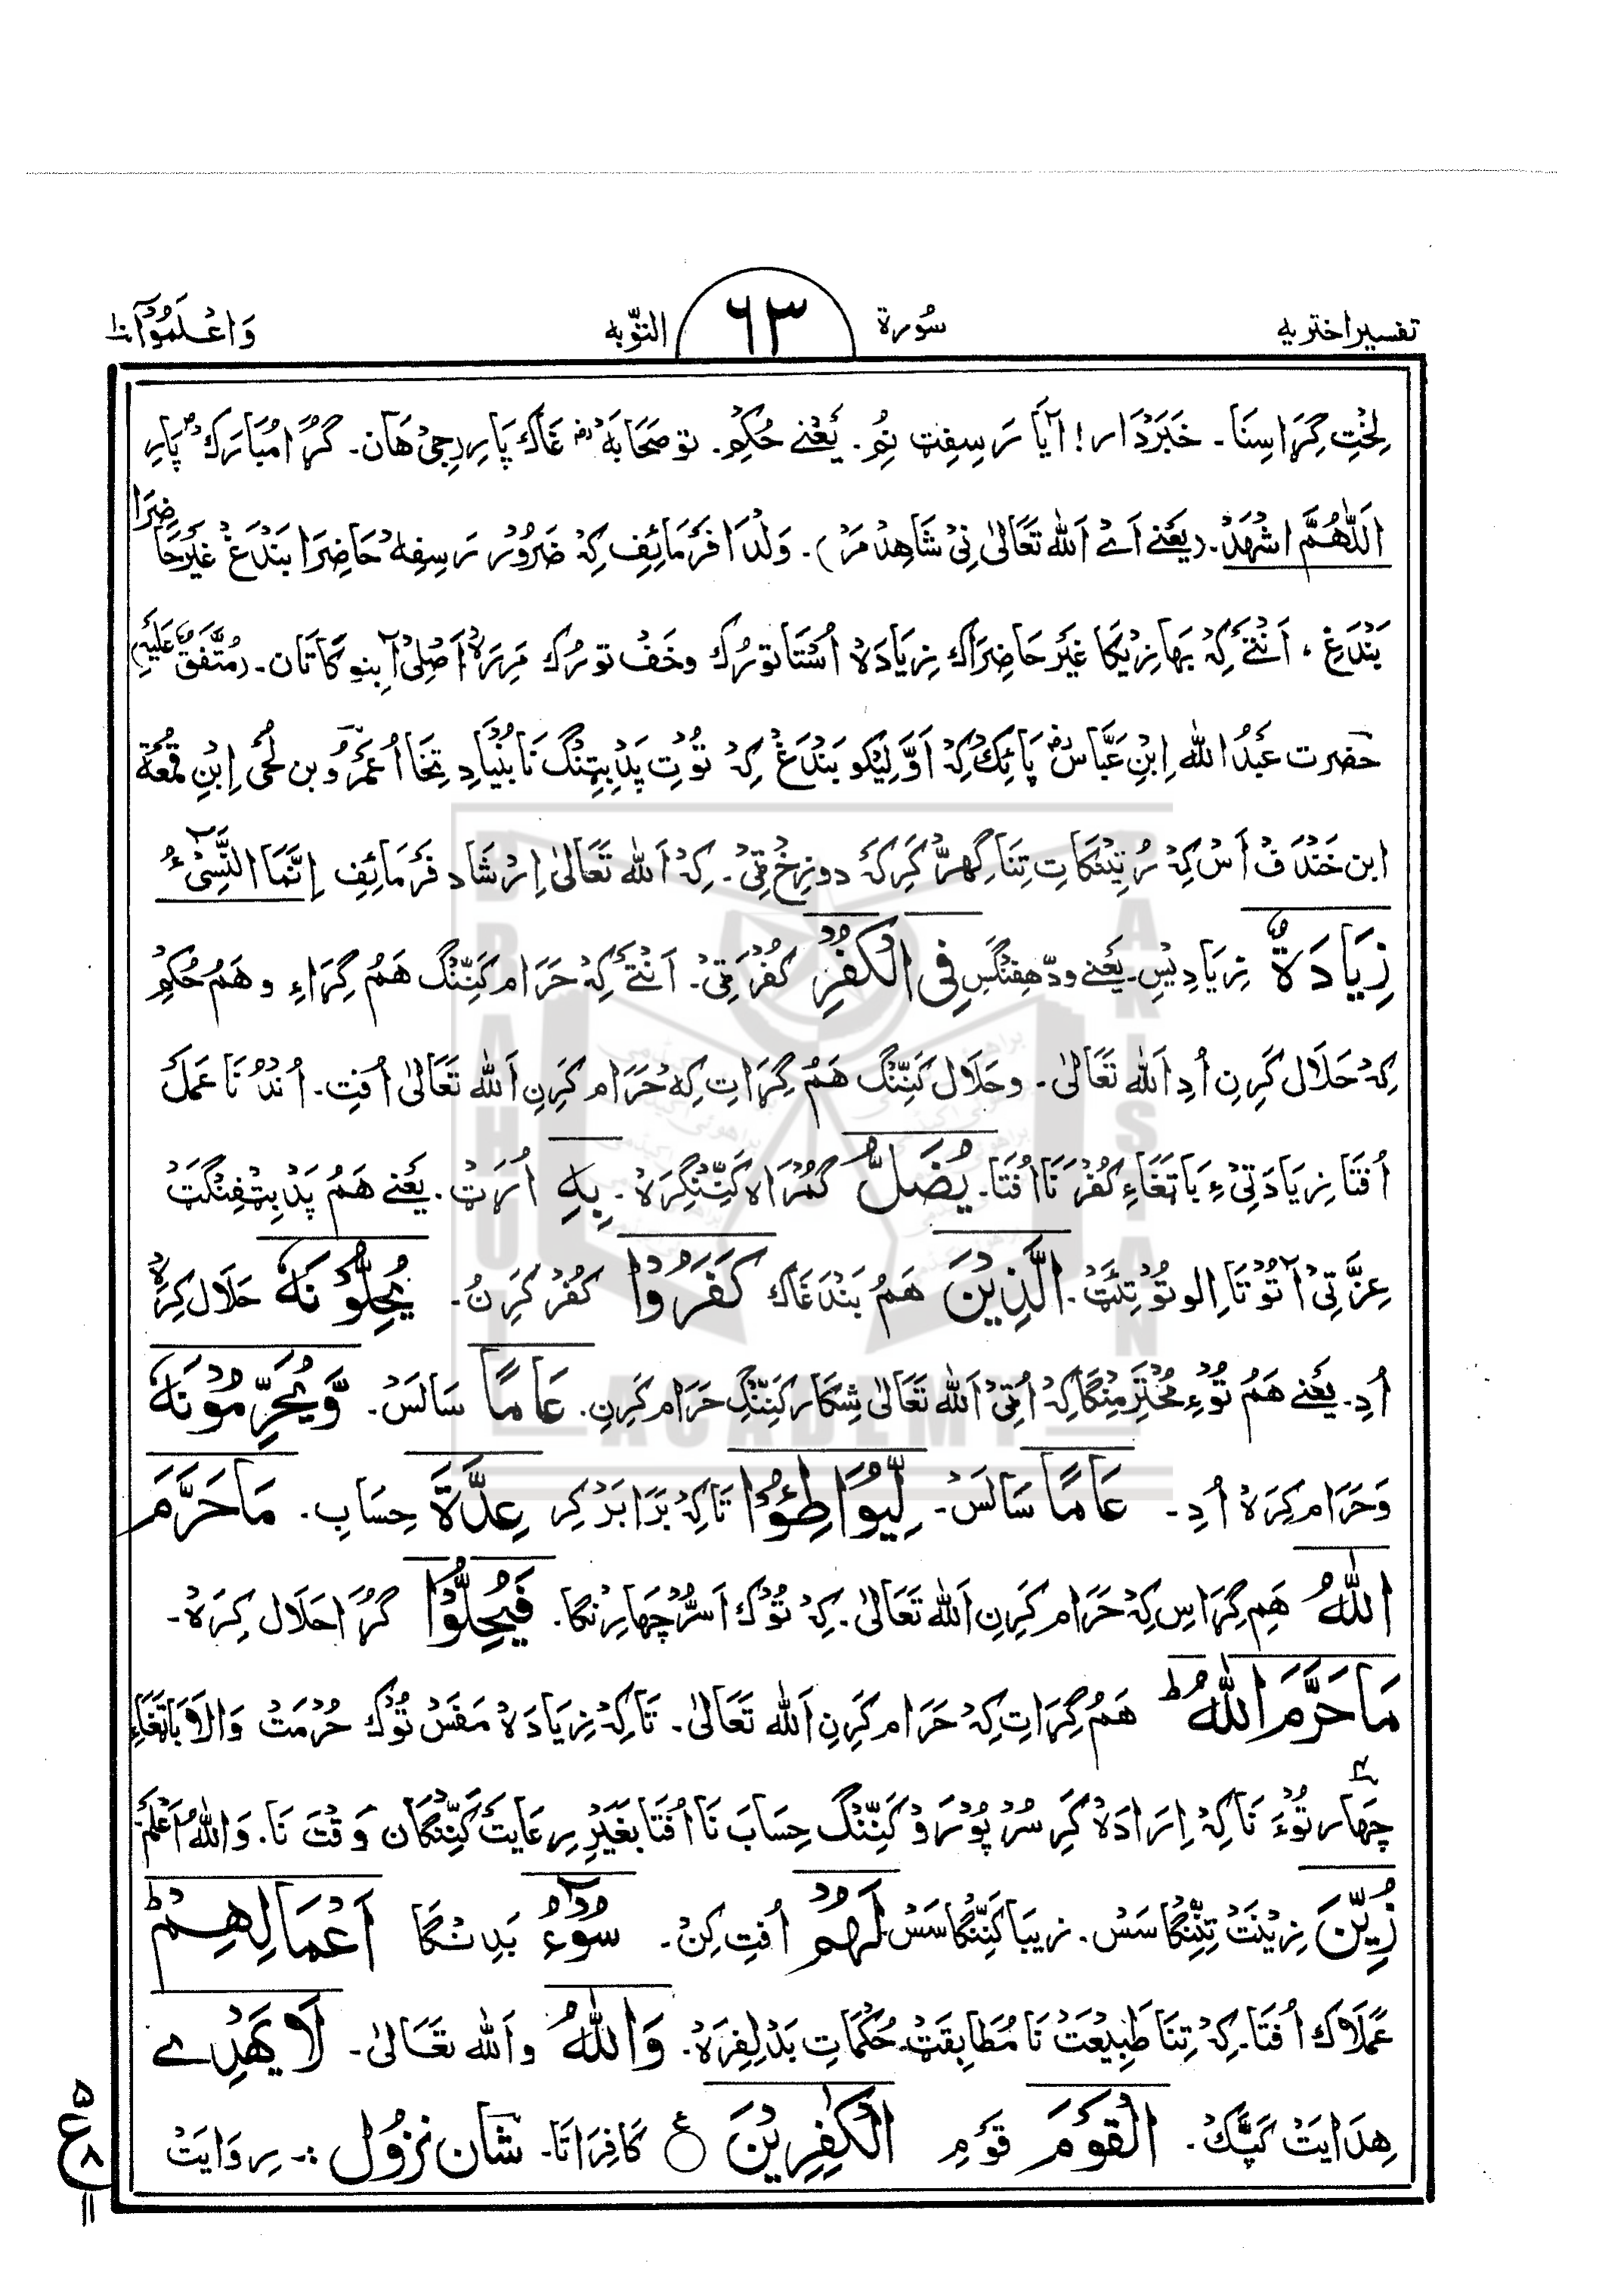 تفسیر اختریه
سُورة ٦٣ التّوبه
وَاعْلَمُوٓا ۱۰
لِخْتِ گِرَاسِنَا۔ خَبَرْدَار! آیَا رَسِفِٹ نِمُ۔ یَعْنے حُکِم۔ تو صَحَابَہ غَاک پَارِر جِیْ هَان۔ گُرَا مُبَارَک پَارِ
اَللّٰهُمَّ اشْهَدْ۔ (یَعْنے اَے اَللّٰه تَعَالیٰ نِیْ شَاهِدْ مَرْ)۔ وَلْدَا فَرَمَائِفِ کِہ ضَرُوْر رَسِفِہ حَاضِرَا بَنْدَغْ غَیْرحَاضِرَا
بَنْدَغِ ، اَنْتَے کِہ بَهَازِیْکَا غَیْر حَاضِرَاک زِیَادَہ اُسْتَا تورُک وخَفْ تورُک مَرِرَہ اَصْلِیْ آ بِنوکَاتَان۔ (مُتَّفَقٌ عَلَیْهِ)
حضرت عَبْدُ اللّٰه اِبْنِ عَبَّاسْ پَائِک کِہ اَوَّلِیْکو بَنْدَغْ کِہ تُوْتِ پَدْ بِتِنْگ نَا بُنْیَادِ تِخَا اُ عَمَرُو بن لُحَیْ اِبْنِ قَمِعَة
ابن خَنْدَفْ اَسْ کِہ رُتِیْنکَاتِ تِنَا گِهِرَّ کَرِکَہ دوزِخْ ٹِیْ۔ کِہ اَللّٰه تَعَالیٰ اِرْشَاد فَرَمَائِفِ اِنَّمَا النَّسِیْٓءُ
زِیَادَةٌ زِیَادِیْسِ۔ یَعْنے ودّهِفِنْگسِ فِی الْکُفْرِ کُفْرَ ٹِیْ۔ اَنْتَے کِہ حَرَام کَنِّنْگ هَمُ گِرَاءِ و هَمُ حُکِمِ
کِہ حَلَال کَرِنِ اُدِ اَللّٰه تَعَالیٰ۔ وحَلَال کَنِّنْگ هَمُ گِرَاتِ کِہ حَرَام کَرِنِ اَللّٰه تَعَالیٰ اُفتِ۔ اُنْدُنَا عَمَل
اُفتَا زِیَادَتِیْ ءِ بَاتَغَاءِ کُفْر نَا اُفتَا۔ یُضَلُّ گُمْرَاہ کَنِّنْگِرَہ۔ بِهِ اُرَٹ۔ یَعْنے هَمُ پَدْ بِتِفِنْگَٹ
عِزَّتِیْ آ تُوْتَا اِلو تُوْتِئَٹ۔ الَّذِیْنَ هَمُ بَنْدَغَاک کَفَرُوْا کُفْر کَرِنُ۔ یُحِلُّوْنَهٗ حَلَال کِرَہ
اُدِ۔ یَعْنے هَمُ تُوْءِ مُحْتَرَمِنْگَا کِہ اُٹِیْ اَللّٰه تَعَالیٰ شِکَار کَنِّنْگِ حَرَام کَرِنِ۔ عَامًا سَالَسْ۔ وَّیُحَرِّمُوْنَهٗ
وَحَرَام کِرَہ اُدِ۔ عَامًا سَالَسْ۔ لِّیُوَاطِئُوْا تَاکِہ بَرَابَرْ کِر عِدَّةَ حِسَابِ۔ مَا حَرَّمَ
اللّٰهُ هَمِ گِرَاسِ کِہ حَرَام کَرِنِ اَللّٰه تَعَالیٰ۔ کِہ تُوْک اَسُّرْ چَهَارِنْگا۔ فَیُحِلُّوْا گُرَا حَلَال کِرَہ۔
مَا حَرَّمَ اللّٰهُ ؕ هَمُ گِرَاتِ کِہ حَرَام کَرِنِ اَللّٰه تَعَالیٰ۔ تَاکِہ زِیَادَہ مَفَسْ تُوْک حُرْمَتْ وَالَا بَاتَغَاءِ
چَهَار تُوْءَ نَا کِہ اِرَادَہ کَرِ سُرْ پُوْرَوْ کَنِّنْگ حِسَابَ نَا اُفتَا بَغَیْرِ رِعَایَتْ کَنِّنْگَان وَقْتَ نَا۔ وَاللّٰهُ اَعْلَمُ
زُیِّنَ زِیْنَتْ تِنِّنْگَا سَسْ۔ زیبَا کَنِّنْگَا سَسْ لَهُمْ اُفتِ کِنْ۔ سُوْٓءُ بَدِ نْگَا اَعْمَالِهِمْ ؕ
عَمَلَاک اُفتَا۔ کِہ تِنَا طَبِیْعَتْ نَا مُطَابِقَٹْ حُکْمَاتِ بَدَلِفِرَہ۔ وَاللّٰهُ واَللّٰه تَعَالیٰ۔ لَا یَهْدِے
هِدَایَتْ کَپَّک۔ الْقَوْمَ قَوْمِ الْکٰفِرِیْنَ ○ ع کَافِرَاتَا۔ شَان نزُوْل :- رِوَایَتْ
۵
ع
۸
۱۱
BRAHUI
ACADEMY
PAKISTAN